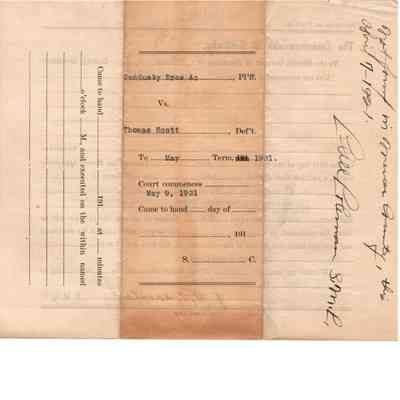 Came to hand
191 at minutes
o'clock M., and executed on the within named
Sandusky Bros &c , Pl'ff.
Vs.
Thomas Scott , Def't.
To May Term, 1921.
Court commences
May 9, 1921
Came to hand day of
, 191
S. C.
Not found in County, this
April 7-1921.